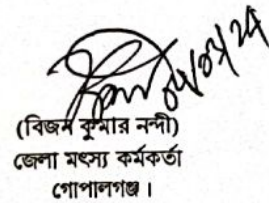 (বিজন কুমার নন্দী)
জেলা মৎস্য কর্মকর্তা
গোপালগঞ্জ।